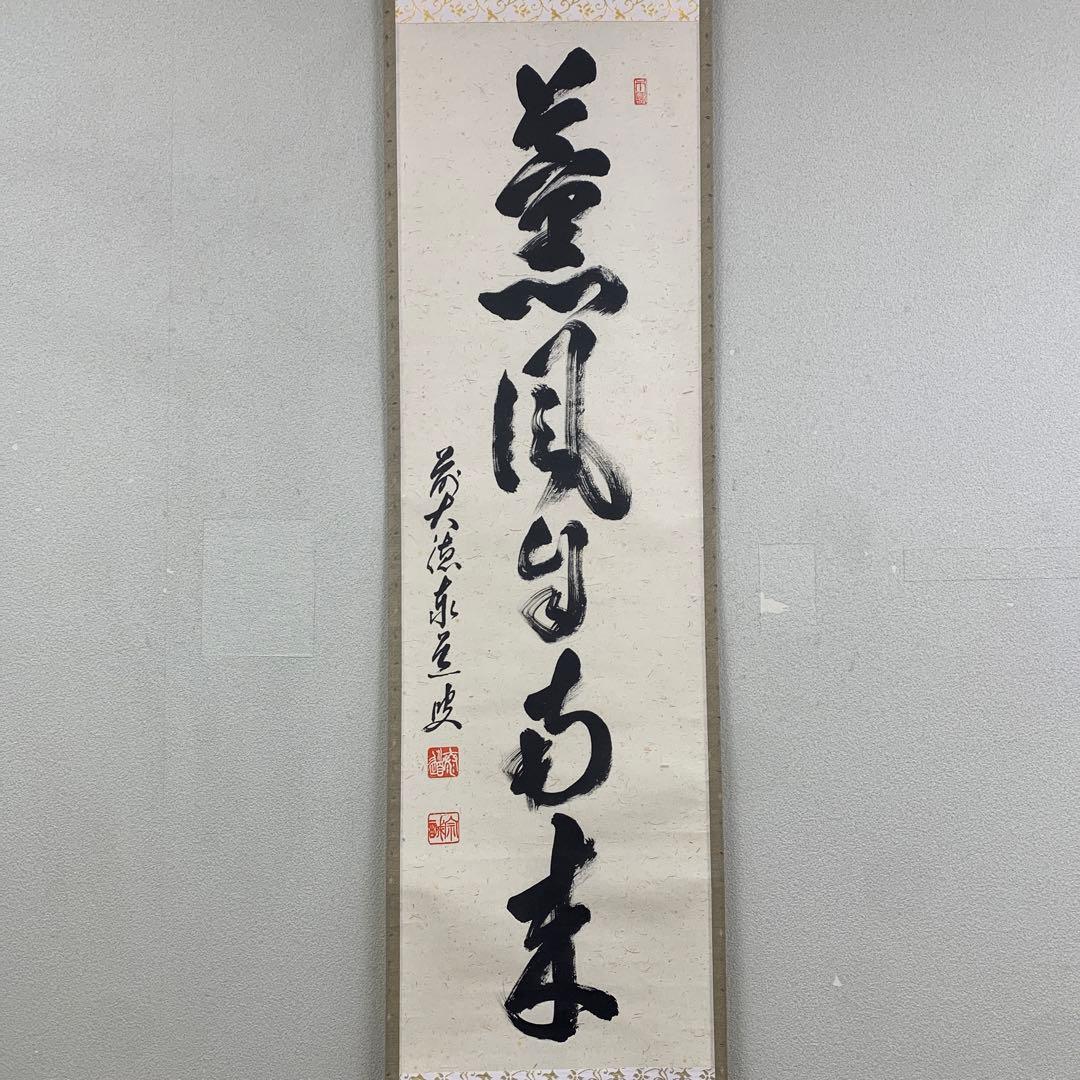 薫風自南来
前大徳泰道叟